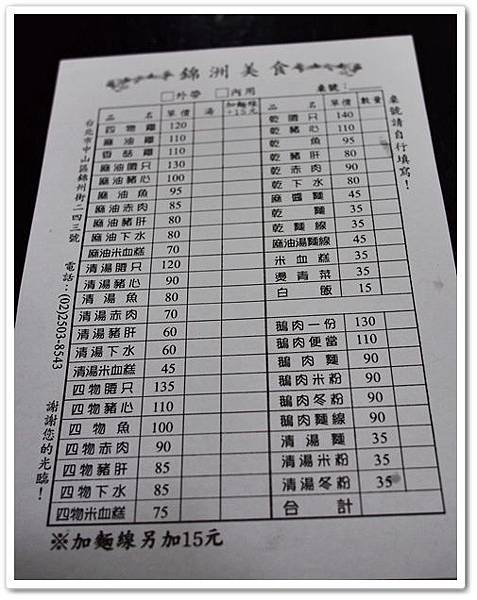 錦洲美食
□外帶 □內用 桌號：
品名 單價 湯 加麵線+15元
四物雞 120
麻油雞 110
香菇雞 110
麻油腰只 130
麻油豬心 100
麻油魚 95
麻油赤肉 85
麻油豬肝 80
麻油下水 80
麻油米血糕 70
清湯腰只 120
清湯豬心 90
清湯魚 80
清湯赤肉 70
清湯豬肝 60
清湯下水 60
清湯米血糕 45
四物腰只 135
四物豬心 110
四物魚 100
四物赤肉 90
四物豬肝 85
四物下水 85
四物米血糕 75
品名 單價 數量
乾腰只 140
乾豬心 110
乾魚 95
乾豬肝 80
乾赤肉 90
乾下水 80
麻醬麵 45
乾麵 35
乾麵線 45
麻油湯麵線 45
米血糕 35
燙青菜 35
白飯 15
鵝肉一份 130
鵝肉便當 110
鵝肉麵 90
鵝肉米粉 90
鵝肉冬粉 90
鵝肉麵線 90
清湯麵 35
清湯米粉 35
清湯冬粉 35
合計
※加麵線另加15元
台北市中山區錦州街二四三號 電話：(02)2503-8543 謝謝您的光臨！
桌號請自行填寫！